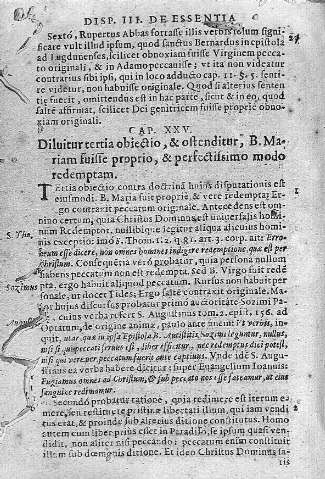 DISP. III. DE ESSENTIA
Sextò, Rupertus Abbas fortasse illis verbis solum signi-
ficare vult illud ipsum, quod sanctus Bernardus in epistola
ad Lugdunenses, scilicet obnoxiam fuisse Virginem pecca-
to originali, & in Adamo peccauisse; vt ita non videatur
contrarius sibi ipsi, qui in loco adducto cap. 11. §. 5. senti-
re videtur, non habuisse originale. Quod si alterius senten
tiæ fuerit, omittendus est in hac parte, sicut & in eo, quod
saltè affirmat, scilicet Dei genitricem fuisse proprie obno-
xiam originali.
CAP. XXV.
Diluitur tertia obiectio, & ostenditur, B. Ma-
riam fuisse proprio, & perfectissimo modo
redemptam.
Tertia obiectio contra doctrinã huius disputationis est
eiusmodi. B. Maria fuit propriè, & verè redempta; Er-
go contraxit peccatum originale. Antecedens est om-
nino certum, quia Christus Dominus est vniuersalis homi-
num Redemptor, nullibique legitur aliqua alicuius homi-
nis exceptio: imò S. Thom. 1. 2. q. 81. art. 3. corp. ait: Erro-
S. Tho.
neum esse dicere, non omnes homines indigere redemptione, quæ est per
Christum. Consequẽtia verò probatur, quia persona nullum
habens peccatum non est redempta. sed B. Virgo fuit redẽ
pta, ergo habuit aliquod peccatum. Rursus non habuit per
Sozimus
sonale, vt docet Fides; Ergo saltẽ contraxit originale. Ma-
ior huius discursus probatur primò auctoritate Sozimi Pa-
pæ, cuius verba refert S. Augustinus tom. 2. epist. 156. ad
Augustin.
Optatum, de origine animæ, paulo ante
Antistitis Sozimi leguntur,
Vnde idẽ S. Augu-
stinus ea verba habere dicitur super Euangelium Ioannis:
Fugiamus omnes ad Christum, & sub peccato nos esse fateamur, vt eius
sanguine redimamur.
Secundò probatur ratione, quia redimere est iterum e-
mere, seu restituere pristinæ libertati illum, qui iam vendi
tus erat, & proinde sub alterius ditione constitutus. Homo
autem cum liber prius esset in Paradiso, se ipsum quasi ven-
didit, non aliter nisi peccando: peccatum enim constituit
illum sub dœmonis ditione. Et ideo Christus Dominus sa-
tis